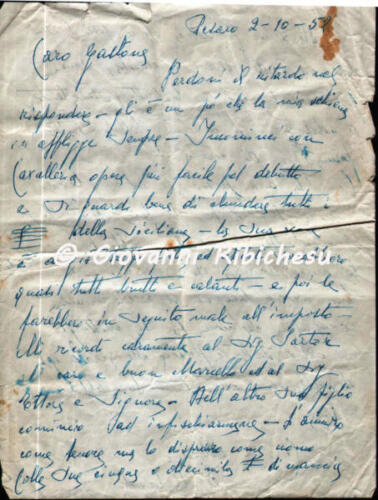 Pesaro 2-10-5
Caro Gastone
Perdoni il ritardo nel
rispondere - gli è un pó che la mia schiena
mi affligge sempre - Incominci con
Cavalleria opera più facile pel debutto
e si guardi bene di chiudere tutti i
della Siciliana - la sua
© Giovanni Ribichesu
quasi tutti brutti e calanti - e poi le
farebbero in seguito male all'imposto -
Mi ricordi caramente al Sig. Sartori
al caro e buon Marcello ed al Sig
Ettore e Signora - Dell'altro suo figlio
comincio ad infischiarmene - L'ammiro
come tenore ma lo disprezzo come uomo
Colla sua